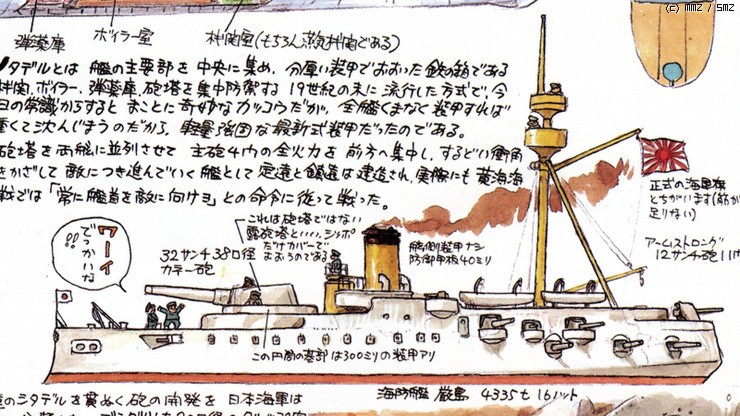 (c) MMZ / SMZ
弾薬庫
ボイラー室
機関室(もちろん蒸気機関である)
タデルとは 艦の主要部を 中央に集め、分厚い装甲でおおった鉄の箱である
機関、ボイラー、弾薬庫、砲塔を集中防禦する 19世紀の末に流行した方式で、今
日の常識からすると まことに奇妙なカッコウだが、全艦くまなく装甲すれば
重くて沈んじまうのだから、軽量強固な最新式装甲だったのである。
砲塔を両舷に並列させて 主砲4門の全火力を 前方へ集中し、するどい衝角
をかざして 敵につき進んでいく艦として 定遠と鎮遠は建造され、実際にも 黄海海
戦では「常に艦首を敵に向けヨ」との命令に従って戦った。
ワーイ
でっかいな
!!
32サンチ38口径
カネー砲
これは砲塔ではない
露砲塔といい、シッポ
だけカバーで
おおうのである
舷側装甲ナシ
防御甲板40ミリ
正式の海軍旗
とちがいます(筋が
足りない)
アームストロング
12サンチ砲11門
この円筒の基部は300ミリの装甲アリ
海防艦 厳島 4335t 16ノット
のシタデルを貫ぬく砲の開発を 日本海軍は